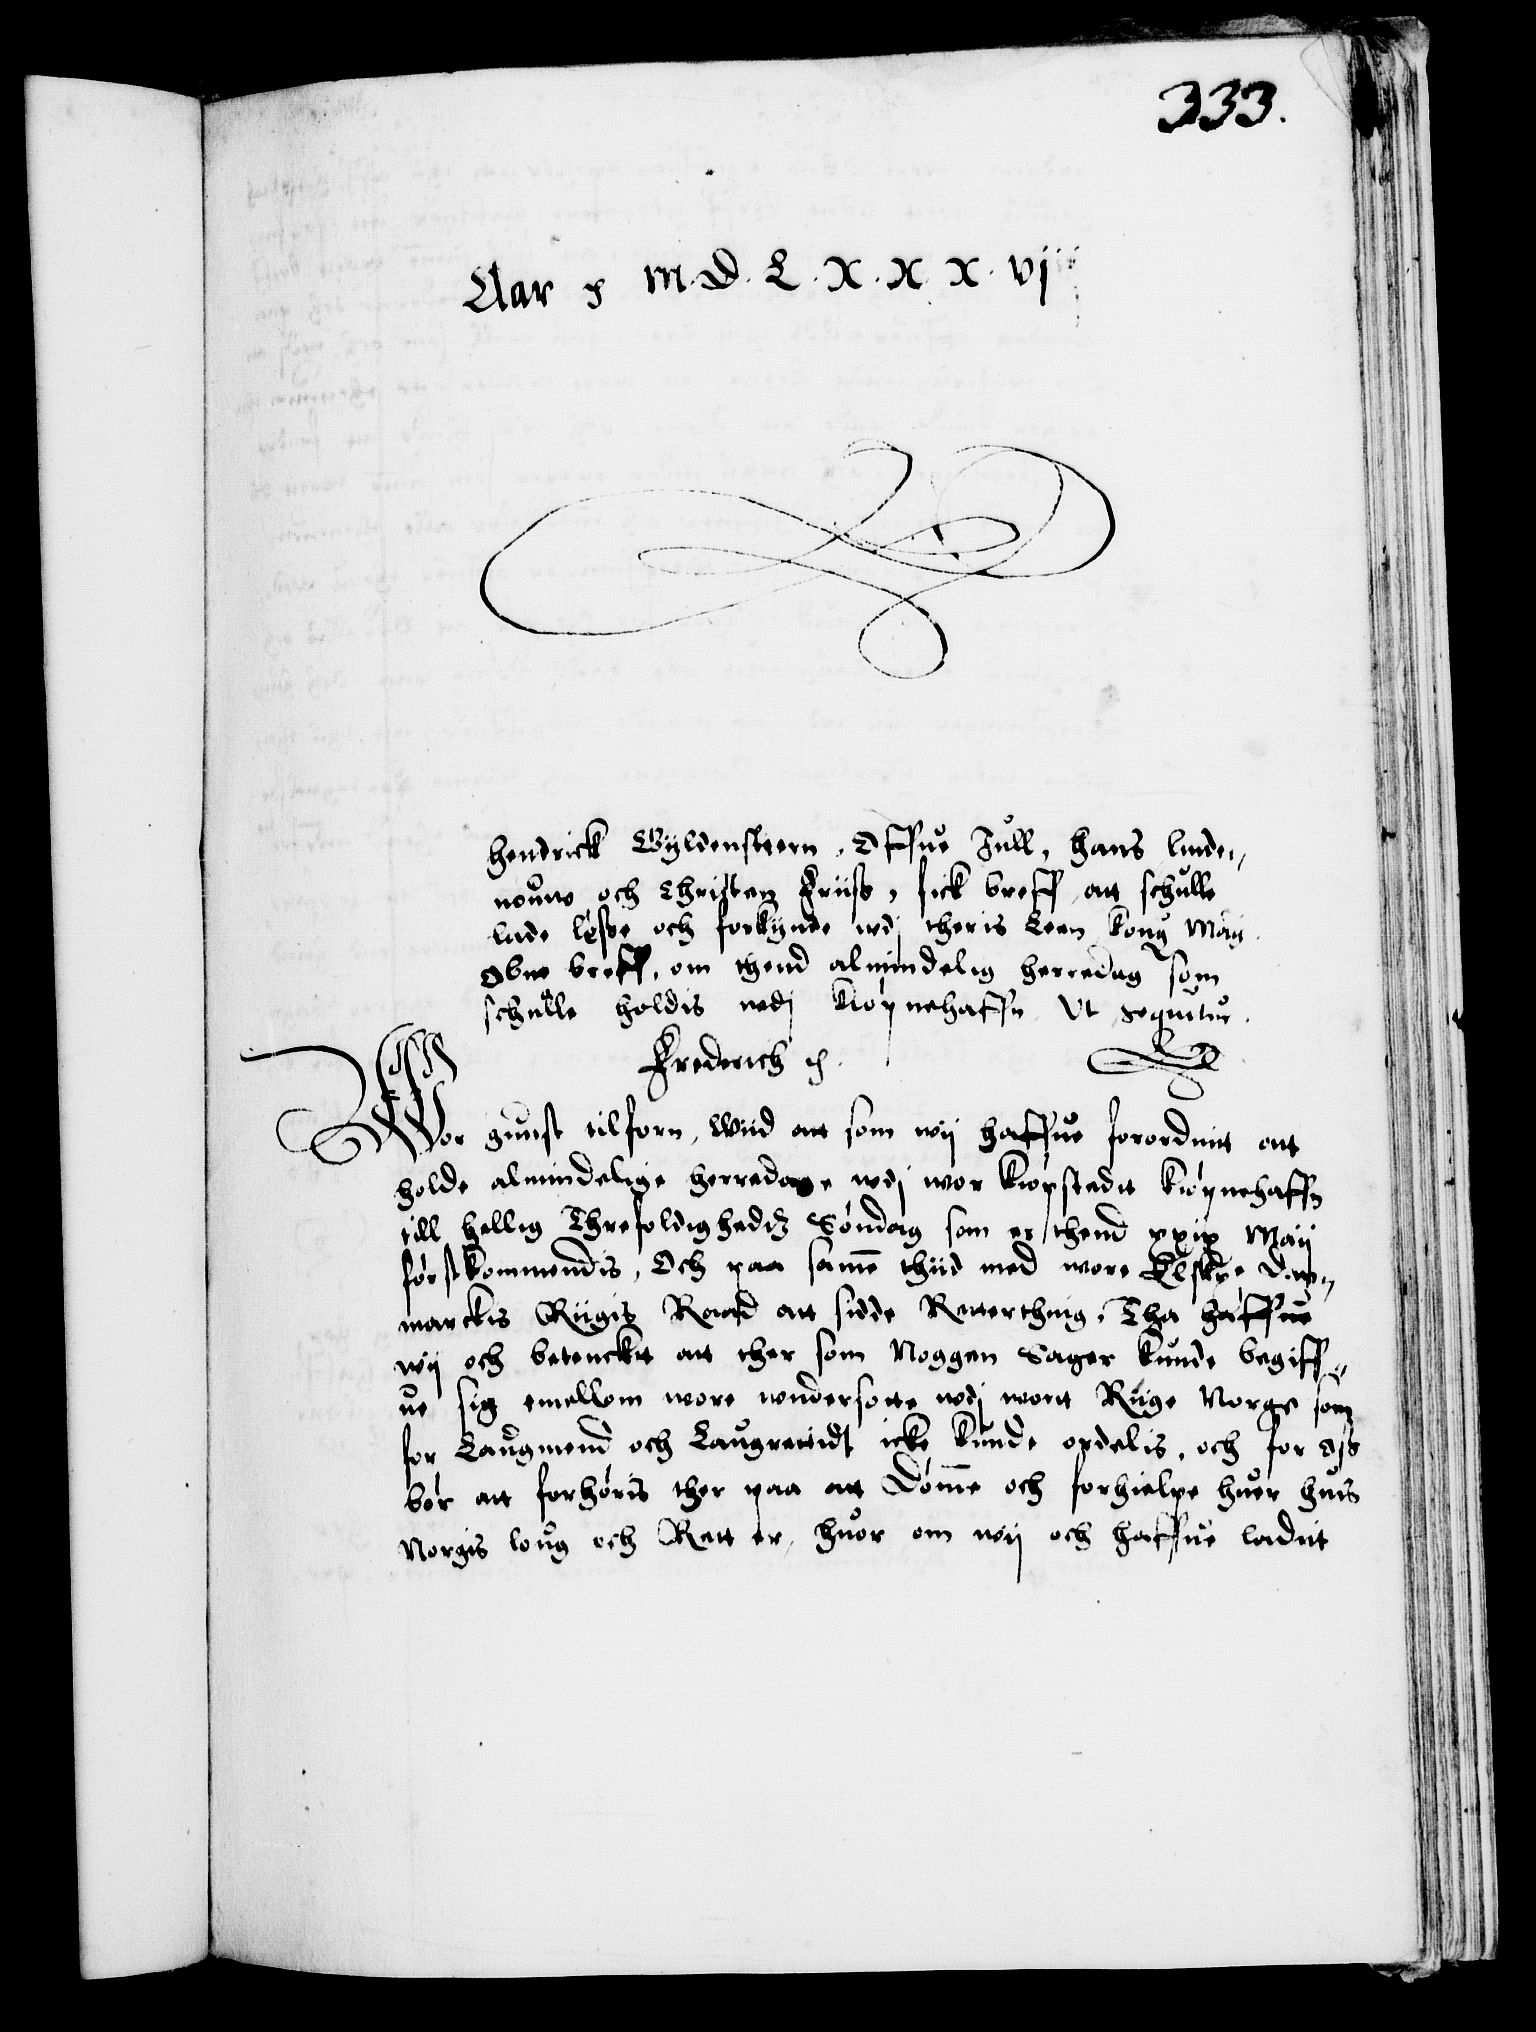 333.
Aar ꝛ M.D.L.X.X.X.vj
Hendrick Gyldensteern, Offue Jull, Hans linde„
nouw och Christen Friiss, fick breff att schulle
lade lesse och forkynde wdj theris Leen kong May
Obne breff, om thend almindelig herredag som
schulle holdis wdj Kiøpnehaffn Vt sequitur.
Frederich ꝛ.
Wor gunst tilforn, Wiid att som wij haffue forordnitt att
holde almindelige herredage wdj wor kiøpstedt Kiøpnehaffn
till hellig Threfoldighedz Søndag som er thend xxix Maij
førstkommendis, Och paa same thiid med wore Elskte Dan„
marckis Riigis Raad att sidde Retterthing, Tha haffue
wij och betenckt att ther som Noggen Sager kunde begiff„
ue sig emellom wore wndersotte wdj wortt Riige Norge som
for Laugmend och Laugrettidt icke kunde ordelis, och for oss
bør att forhøris ther paa att Døme och forhielpe huer huis
Norgis loug och Rett er, huor om wij och haffue ladiit